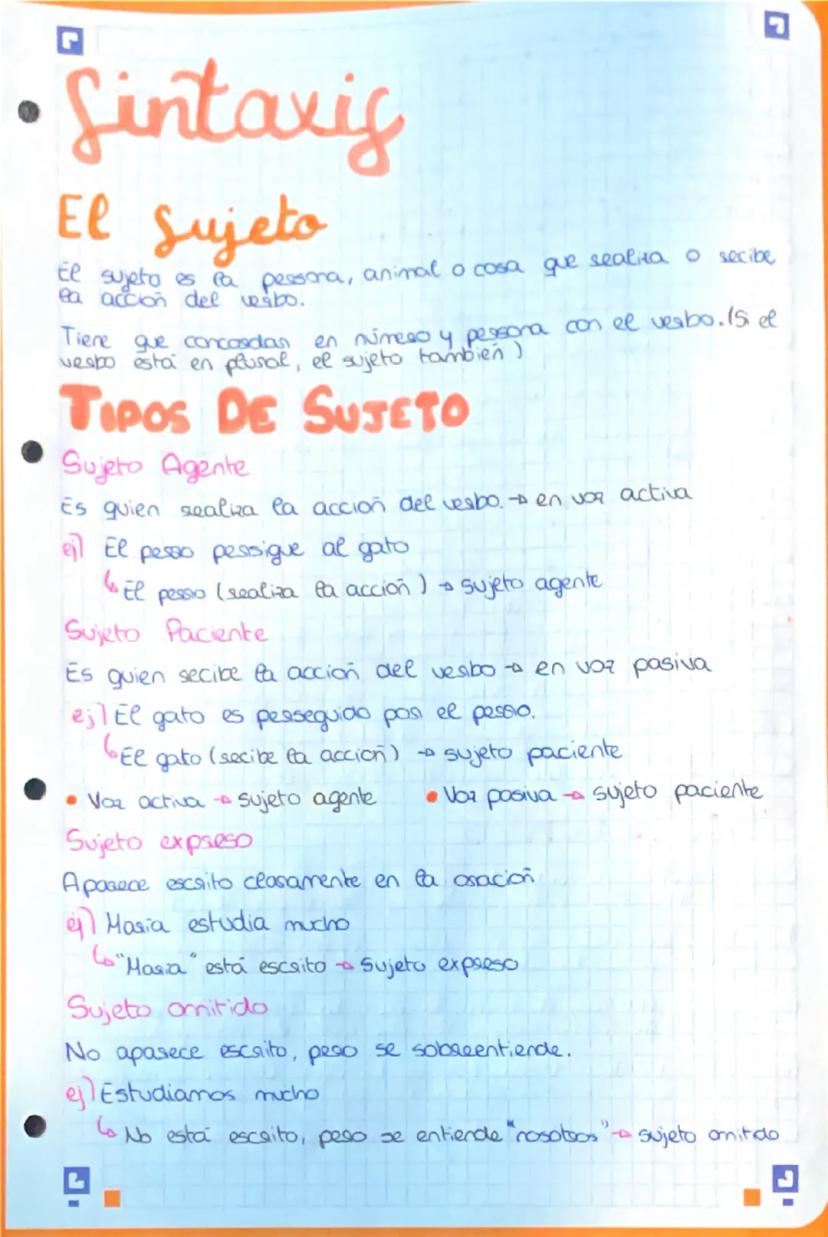 Sintaxis
El sujeto
El sujeto es la persona, animal o cosa que realiza o recibe
la acción del verbo.
Tiene que concordar en número y persona con el verbo. (Si el
verbo está en plural, el sujeto también)
TIPOS DE SUJETO
Sujeto Agente
Es quien realiza la acción del verbo. → en voz activa
ej) El perro persigue al gato
↳ El perro (realiza la acción) → sujeto agente
Sujeto Paciente
Es quien recibe la acción del verbo → en voz pasiva
ej) El gato es perseguido por el perro.
↳ El gato (recibe la acción) → sujeto paciente
• Voz activa → sujeto agente • Voz pasiva → sujeto paciente
Sujeto expreso
Aparece escrito claramente en la oración
ej) María estudia mucho
↳ "María" está escrito → sujeto expreso
Sujeto omitido
No aparece escrito, pero se sobreentiende.
ej) Estudiamos mucho
↳ No está escrito, pero se entiende "nosotros" → sujeto omitido